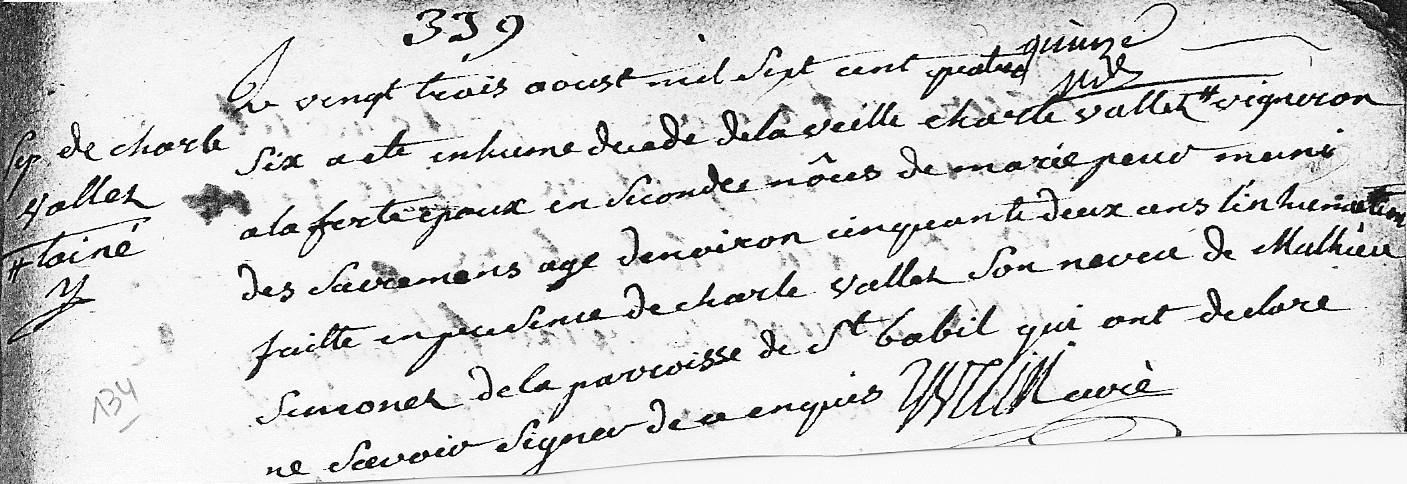 339
Sep de charle
Vallez
# lainé
Le vingt trois aoust mil Sept cent quatre quinze
Six a ete inhume decede de la veille charle vallez # vigneron
a la ferte epoux en Secondee nôces de marie peuv muni
des Sacremens age denviron cinquante deux ans linhumation
faitte en presence de charle vallez Son neveu de Mathieu
Simonez de la parroisse de St babil qui ont declare
ne Savoir Signer de ce enquis
curé
134